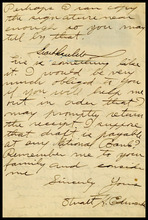 Perhaps I can copy
the signature near
enough so you may
tell by that.
its is something like
it I would be very
much obliged to you
if you will help me
out in order that I
may promptly return
the receipt. I notice
that draft is payable
at any National Bank?
Remember me to your
family and
me
Sincerely Yours
Stuart